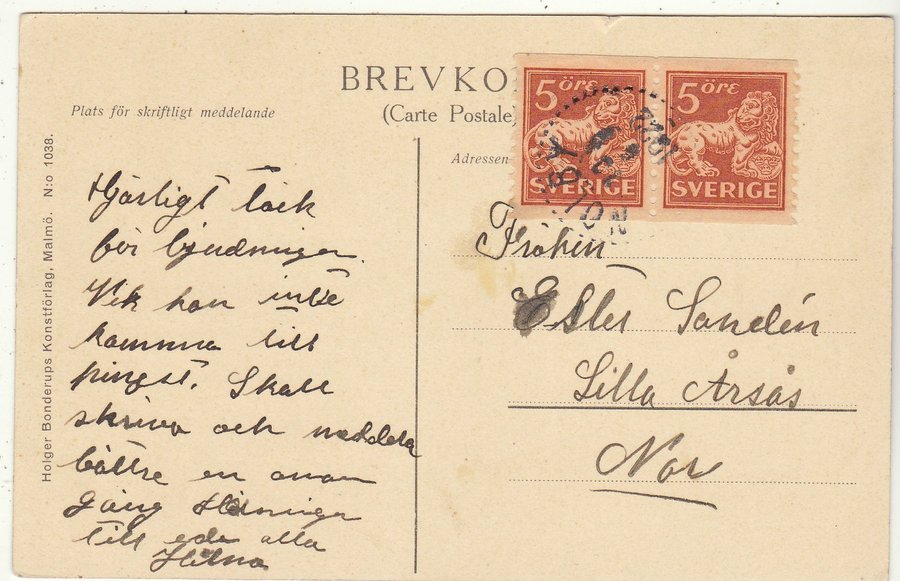 BREVKO
(Carte Postale
Plats för skriftligt meddelande
Adressen
5 ÖRE
SVERIGE
5 ÖRE
SVERIGE
Holger Bonderups Konstförlag, Malmö. N:o 1038.
Hjärligt tack
för bjudningen
kan inte
komma till
pingst. Skall
skriva och meddela
bättre en annan
gång Hälsningar
till eder alla
Fröken
Ester Sandén
Lilla Årsås
Nor